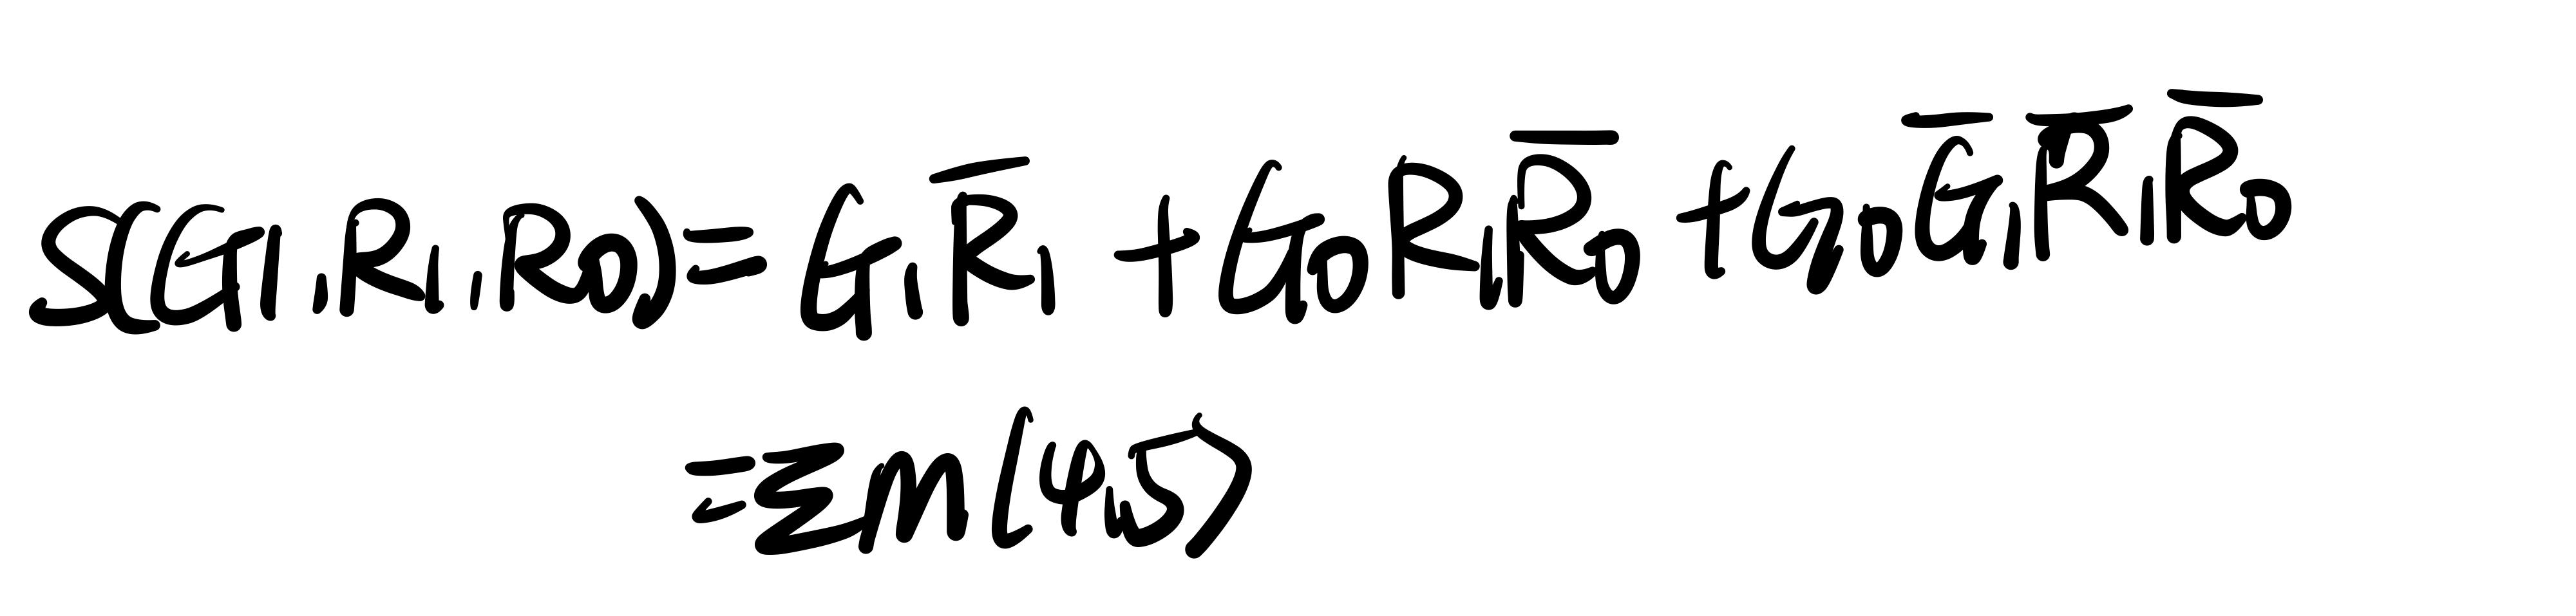 S(G1,R1,R0)= G₁R̅₁ + G₀R₁R̅₀ + G₀G̅₁R̅₁R̅₀
=Σm(4,5)